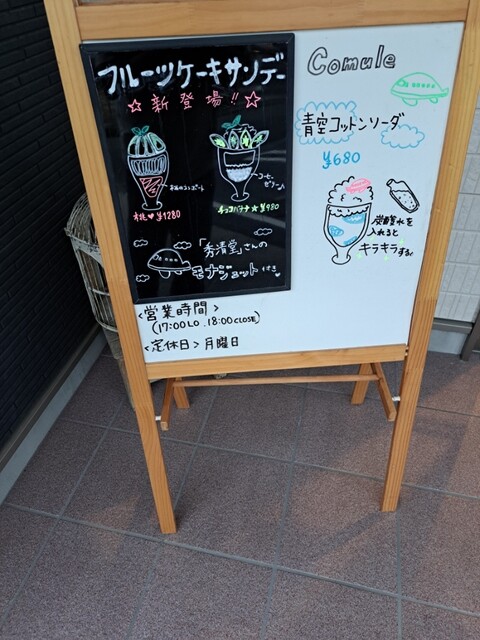 フルーツケーキサンデー
☆新登場!!☆
桃♥¥1280
コーヒー
ゼリー入り
チョコバナナ★¥980
「秀清堂」さんの
モナジェット付き♥
Comule
青空コットンソーダ
¥680
炭酸水を
入れると
キラキラする
<営業時間>
(17:00LO.18:00CLOSE)
<定休日>月曜日